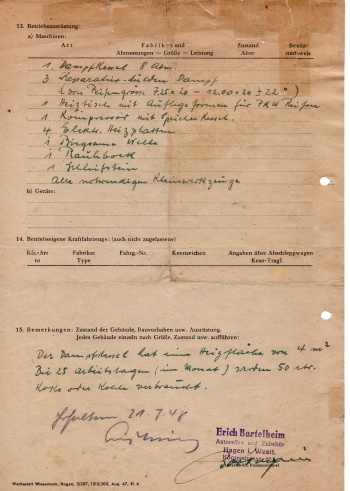 13. Betriebsausrüstung:
a) Maschinen:
Art Fabrikat und Zustand Bezug-
Abmessungen — Größe — Leistung Alter nachweis
1 Dampfkessel 8 Atm.
3 Reparatur-Mulden Dampf
(von Reifengröße 7.25 x 20 - 12.00 x 20 ± 22")
1 Heiztisch mit Auflageformen für PKW Reifen
1 Kompressor mit Speicherkessel.
4 Elektr. Heizplatten
1 Biegsame Welle
1 Rauhbock
1 Schleifstein
Alle notwendigen Kleinwerkzeuge
b) Geräte:
14. Betriebseigene Kraftfahrzeuge: (auch nicht zugelassene)
Kfz.-Art Fabrikat Fahrg.-Nr. Kennzeichen Angaben über Abschleppwagen
to Type Kran-Tragf.
15. Bemerkungen: Zustand der Gebäude, Bauvorhaben usw. Ausrüstung.
Jedes Gebäude einzeln nach Größe, Zustand usw. aufführen:
Der Dampfkessel hat eine Heizfläche von 4 m²
Bei 25 Arbeitstagen (im Monat) werden 50 Ztr.
Koks oder Kohle verbraucht.
21.7.48
Erich Bartelheim
Autoreifen und Zubehör
Hagen i. Westf.
Werbestatt Wiesemann, Hagen, D/207, 1513/500, Aug. 47, Kl. A